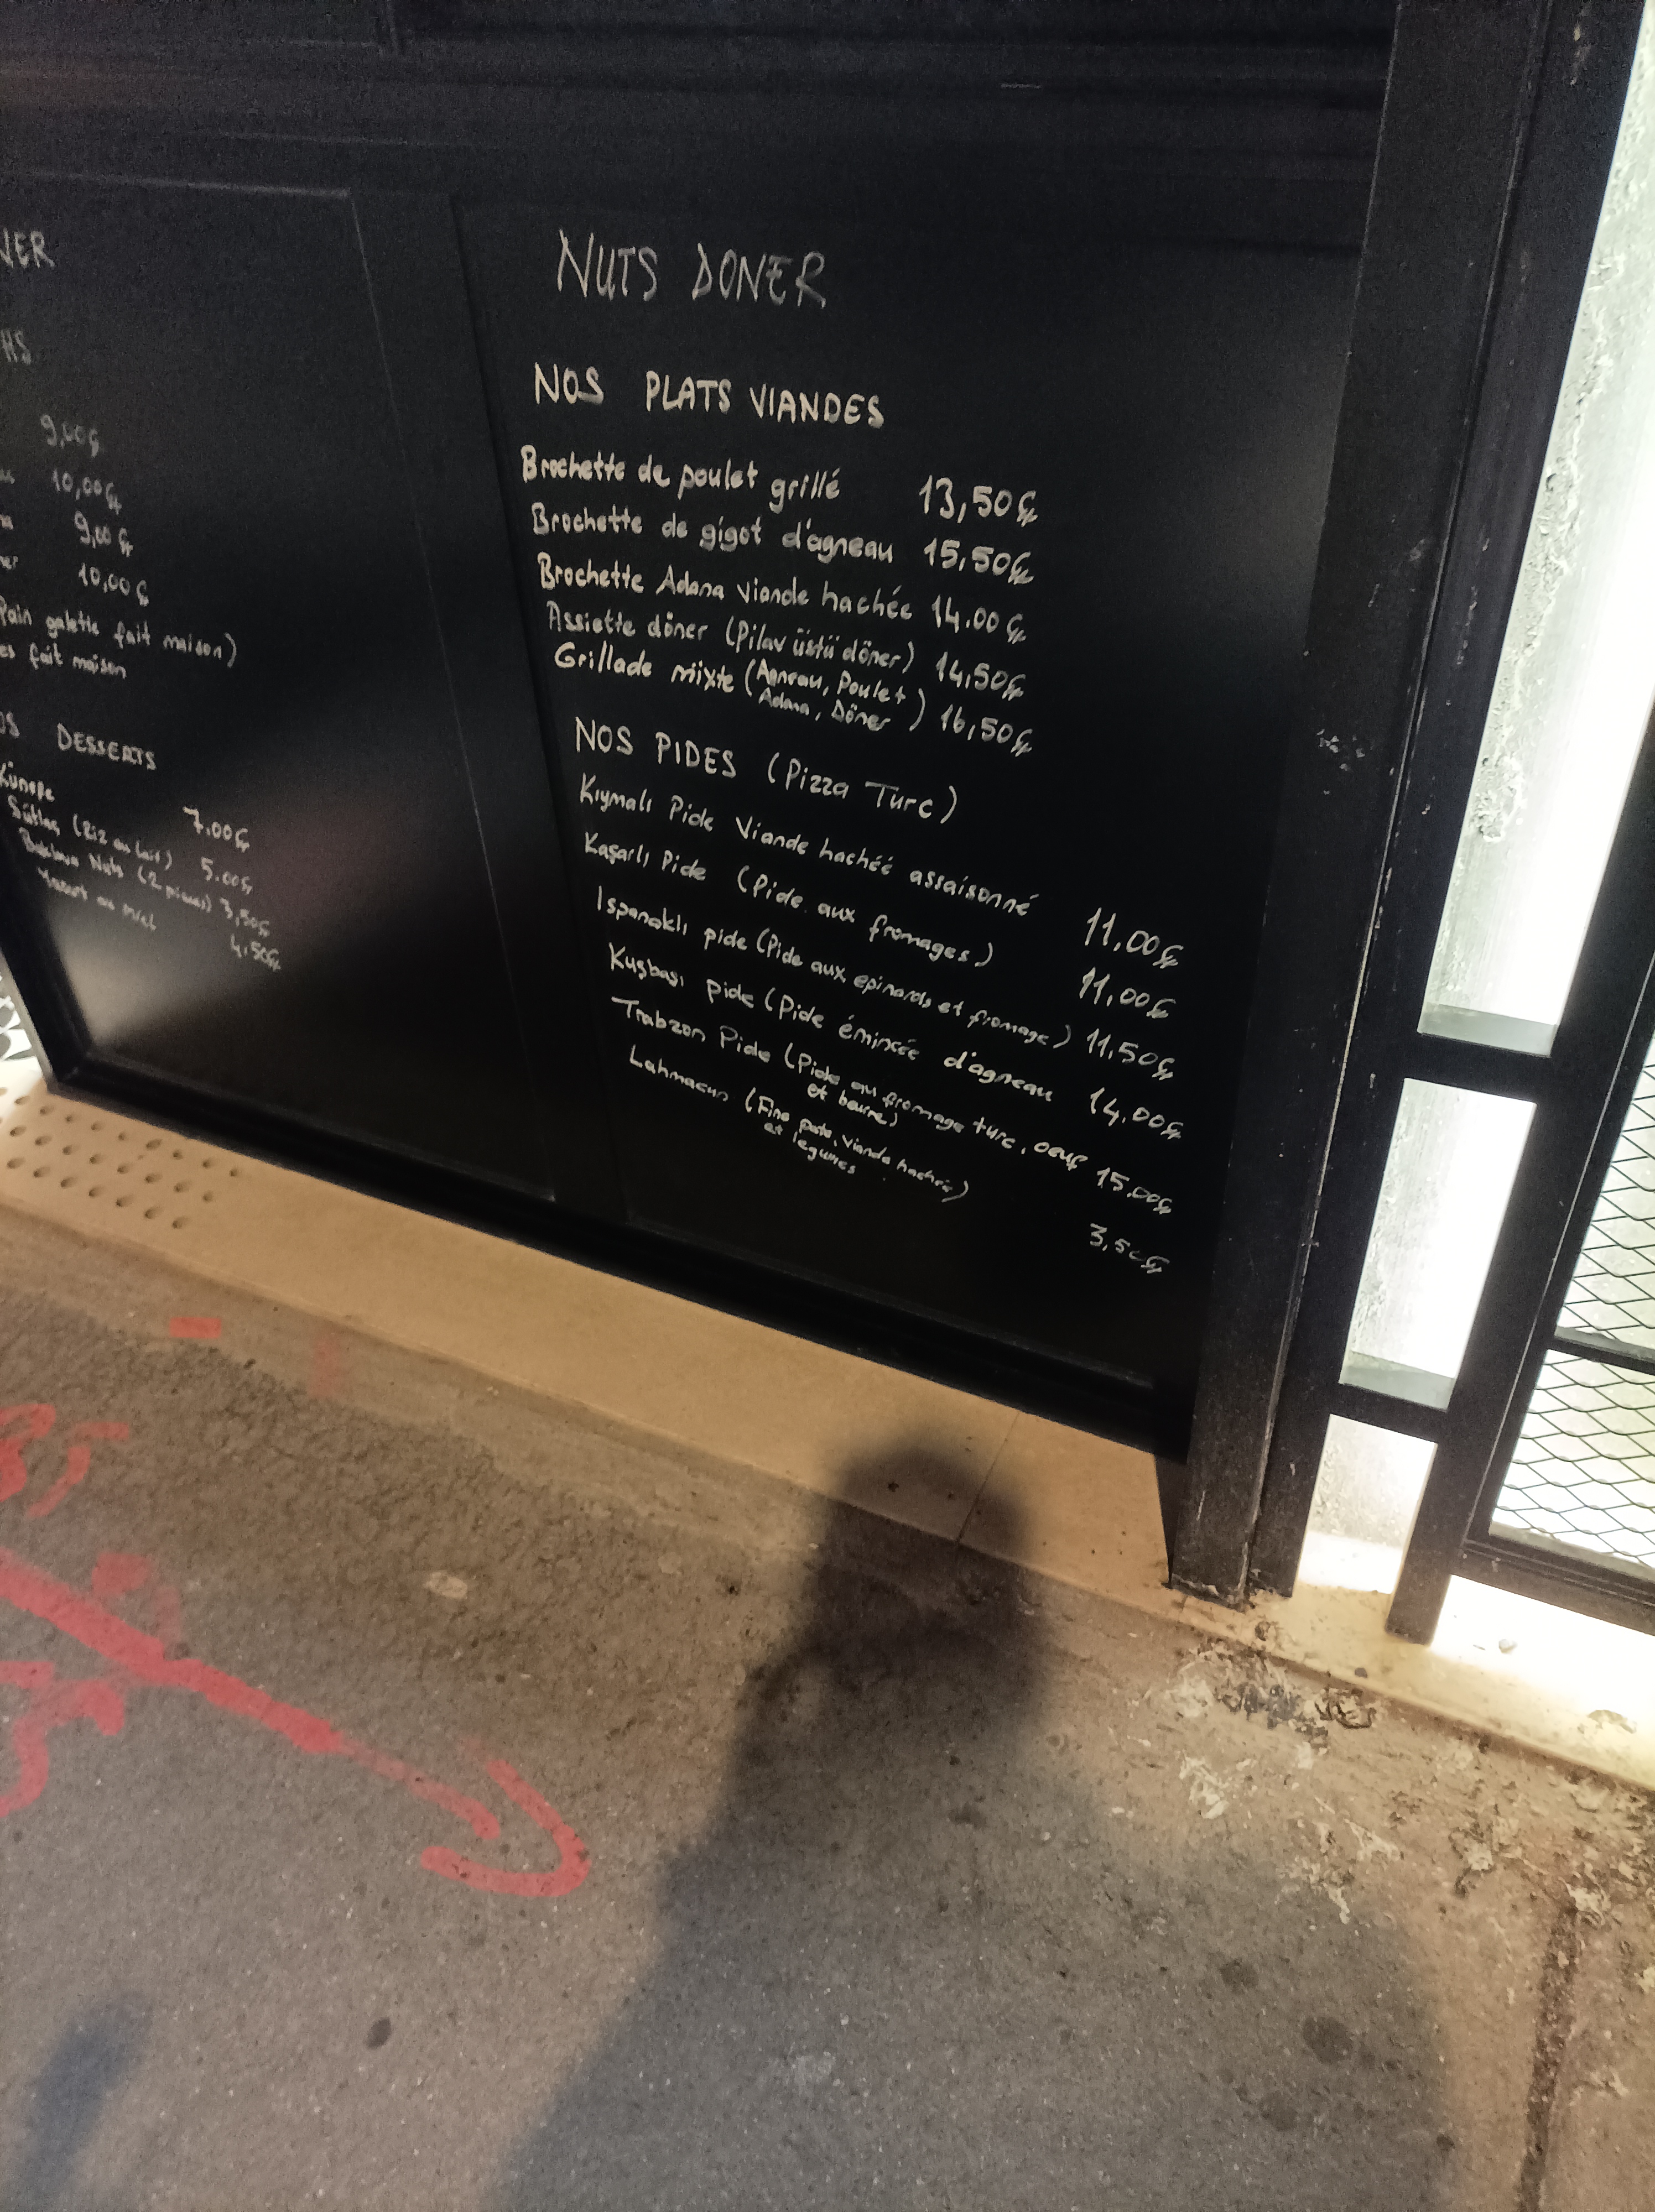 NER
HS
9,00€
10,00€
9,00€
10,00€
Pain galette fait maison)
es fait maison
OS DESSERTS
Künefe 7.00€
Sütlaç (Riz au lait) 5.00€
Baklava Nuts (2 pieces) 3,50€
Yaourt au miel 4.50€
NUTS DONER
NOS PLATS VIANDES
Brochette de poulet grillé 13,50€
Brochette de gigot d'agneau 15,50€
Brochette Adana viande hachée 14.00€
Assiette döner (Pilav üstü döner) 14,50€
Grillade mixte (Agneau, Poulet
Adana, Döner) 16,50€
NOS PIDES (Pizza Turc)
Kıymalı Pide Viande hachéé assaisonné 11.00€
Kaşarlı Pide (Pide aux fromages) 11,00€
Ispanaklı pide (Pide aux epinards et fromage) 11,50€
Kuşbaşı pide (Pide émincée d'agneau 14,00€
Trabzon Pide (Pide au fromage turc, oeuf 15.00€
et beurre)
Lahmacun (Fine pate, viande hachée) 3,50€
et legumes